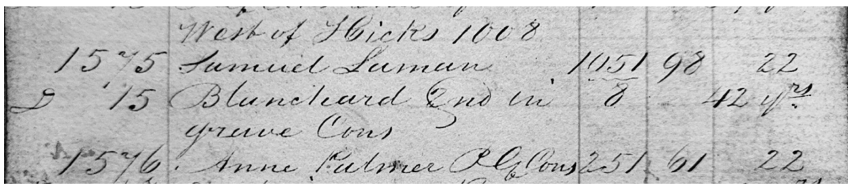 West of Hicks 1008
1575 Samuel Laman 1051 98 22
D 15 Blanchard 2nd in 8 42 yrs
grave Cons
1576 Anne Palmer P G Cons 251 61 22